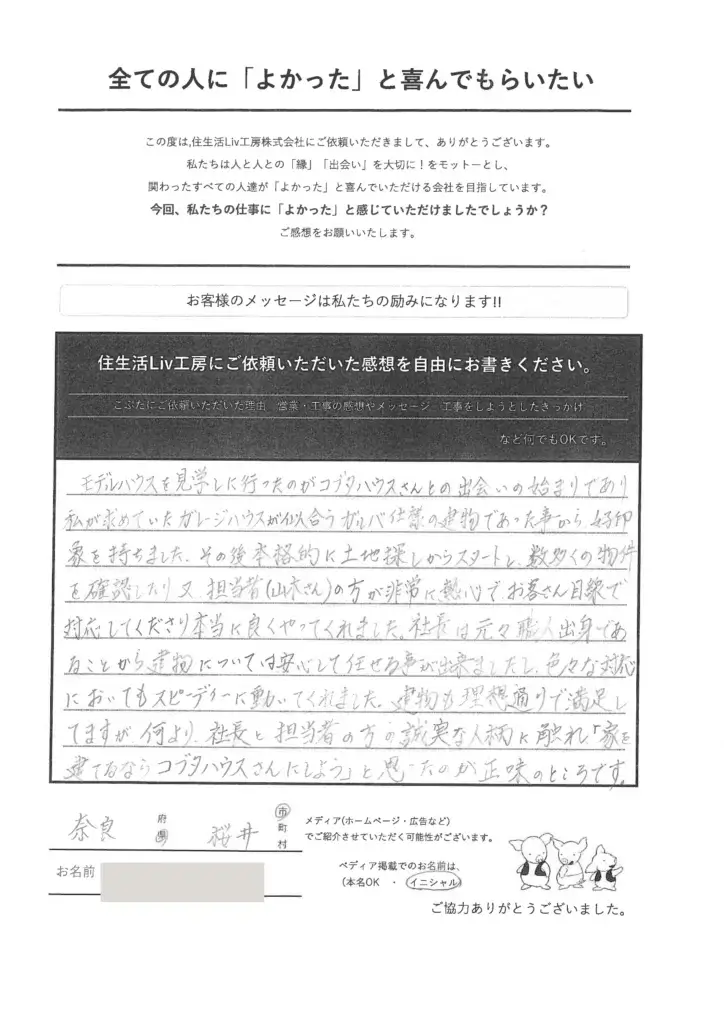 全ての人に「よかった」と喜んでもらいたい
この度は,住生活Liv工房株式会社にご依頼いただきまして、ありがとうございます。
私たちは人と人との「縁」「出会い」を大切に！をモットーとし、
関わったすべての人達が「よかった」と喜んでいただける会社を目指しています。
今回、私たちの仕事に「よかった」と感じていただけましたでしょうか？
ご感想をお願いいたします。
お客様のメッセージは私たちの励みになります!!
住生活Liv工房にご依頼いただいた感想を自由にお書きください。
こぶたにご依頼いただいた理由　営業・工事の感想やメッセージ　工事をしようとしたきっかけ
など何でもOKです。
モデルハウスを見学しに行ったのがコブタハウスさんとの出会いの始まりであり
私が求めていたガレージハウスが似合うガルバ仕様の建物であった事から好印
象を持ちました。その後本格的に土地探しからスタートし、数多くの物件
を確認したり又、担当者(山本さん)の方が非常に熱心でお客さん目線で
対応してくださり本当に良くやってくれました。社長は元々職人出身であ
ることから建物については安心して任せる事が出来ましたし、色々な対応
においてもスピーディーに動いてくれました。建物も理想通りで満足し
てますが、何より、社長と担当者の方の誠実な人柄に触れ「家を
建てるならコブタハウスさんにしよう」と思ったのが正味のところです。
奈良 府 県 桜井 市 町 村
メディア(ホームページ・広告など)
でご紹介させていただく可能性がございます。
お名前
ペディア掲載でのお名前は、
(本名OK ・ イニシャル)
ご協力ありがとうございました。